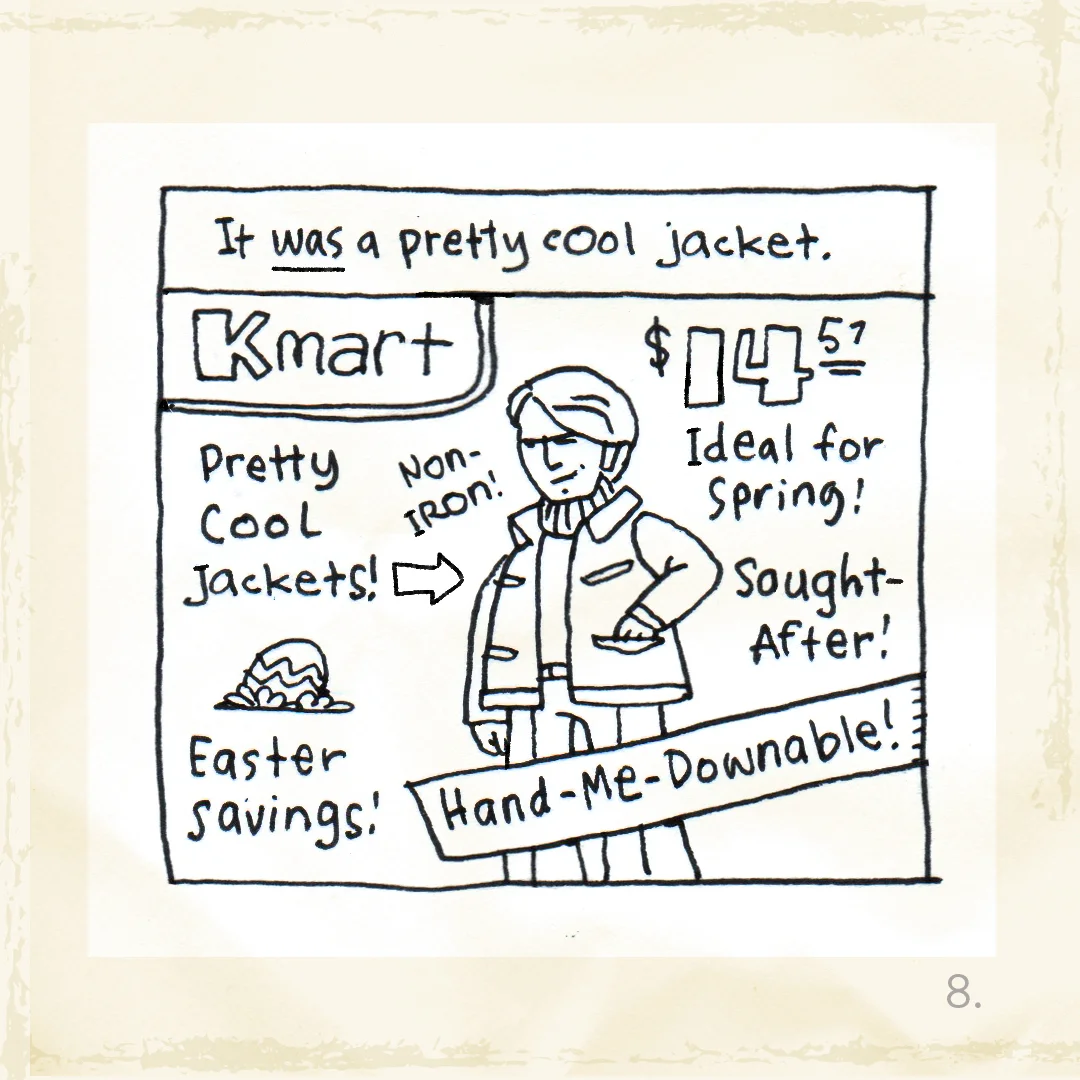 It was a pretty cool jacket.
Kmart
$14 57
Ideal for
Spring!
Pretty
Cool
Jackets!
Non-
IRON!
Sought-
After!
Easter
Savings!
Hand-Me-Downable!
8.